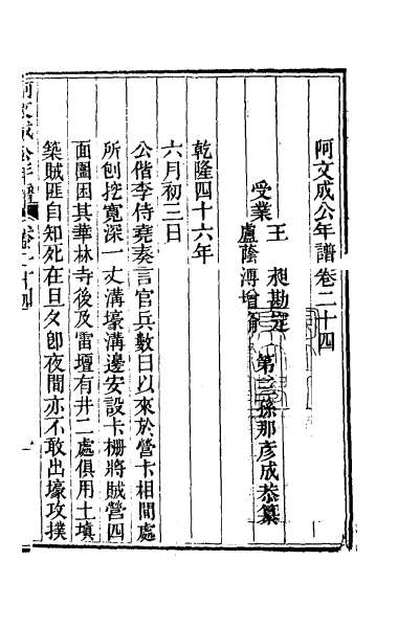 阿文成公年譜卷二十四
第三孫那彥成恭纂
受業
王　昶勘定
盧蔭溥增脩
乾隆四十六年
六月初三日
公偕李侍堯奏言官兵數日以來於營卡相間處
所刨挖寬深一丈溝壕溝邊安設卡柵將賊營四
面圍困其華林寺後及雷壇有井二處俱用土填
築賊匪自知死在旦夕即夜間亦不敢出壕攻撲
阿文成公年譜 卷二十四 一